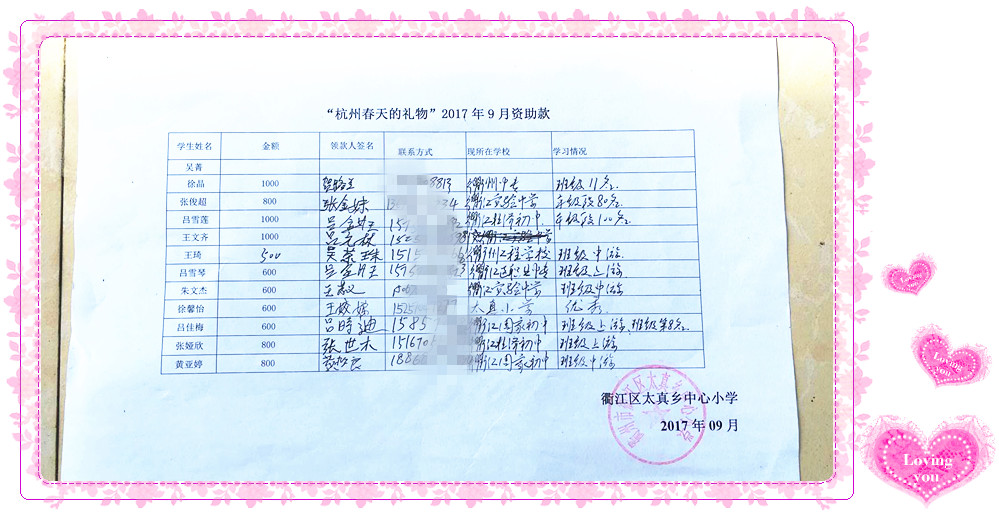 “杭州春天的礼物”2017 年 9 月资助款
学生姓名 金额 领款人签名 联系方式 现所在学校 学习情况
吴菁
徐晶 1000 8813 衢州中专 班级11名
张俊超 800 张金妹 34 衢江实验中学 年级段80名
吕雪莲 1000 159 衢江杜泽初中 年级段100名
王文齐 1000
王琦 500 吴荣珠 1515 衢州工程学校 班级中游
吕雪琴 600 1595 衢江区职业中专 班级上游
朱文杰 600 衢江实验中学 班级中游
徐馨怡 600 太真小学 优秀
吕佳梅 600 吕时迪 1585 衢江周家初中 班级上游、班级第8名
张娅欣 800 张世木 15670 衢江杜泽初中 班级上游
黄亚婷 800 188 衢江周家初中 班级中游
衢江区太真乡中心小学
2017 年 09 月
Loving
you
Loving
you
Loving
you